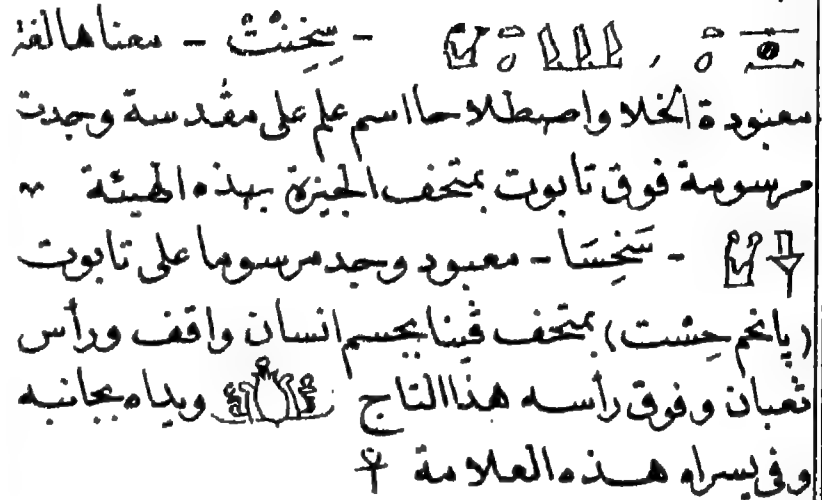 - سِخِنِتْ - معناها لغة
معبودة الخلا واصطلاحا اسم علم على مقدسة وجدت
مرسومة فوق تابوت بمتحف الجيزة بهذه الهيئة
- سَنخِسَا - معبود وجد مرسوما على تابوت
(پانخم حِشت) بمتحف ڤينا بجسم انسان واقف ورأس
ثعبان وفوق رأسه هذا التاج ويداه بجانبه
وفي يسراه هذه العلامة